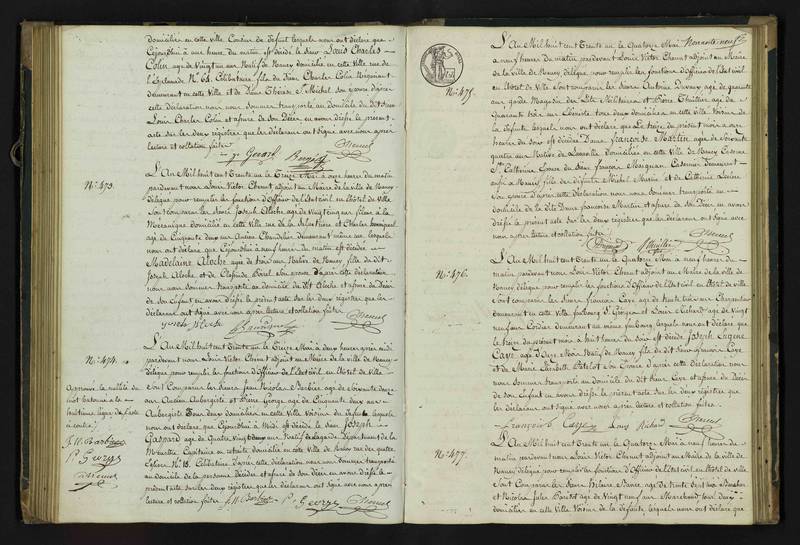 domiciliés en cette ville Cousins du défunt lesquels nous ont déclaré que
Cejourdhui à une heure du matin est décédé le Sieur Louis Charles
Colin agé de Vingt un ans Natif de Nancy domicilié en cette ville rue de
l'Esplanade No 64. Célibataire fils du Sieur Charles Colin Négociant
demeurant en cette ville et de Dame Thérèse Michel son épouse d'après
cette déclaration nous nous sommes transporté au domicile du dit Sieur
Louis Charles Colin et assuré de son Décès en avons dressé le présent
acte sur les deux registres que les déclarans ont signé avec nous après
lecture et collation faites
J. Gerard
No 473.
L'An Mil huit cent Trente un le Treize Mai à onze heures du matin
pardevant nous Louis Victor Chenut adjoint au Maire de la ville de Nancy
délégué pour remplir les fonctions d'Officier de l'Etat civil en l'Hôtel de Ville
Sont comparus les Sieurs Joseph Aloche agé de Vingt cinq ans fileur à la
Mécanique domicilié en cette ville rue de la Salpétrière et Charles
agé de Cinquante deux ans Ancien Chandelier demeurant même rue lesquels
nous ont déclaré que Cejourdhui à neuf heures du matin est décédée
Madelaine Aloche agée de trois ans Native de Nancy fille du dit
Joseph Aloche et de son épouse d'après cette déclaration
nous nous sommes transporté au domicile du dit Aloche et assuré du décès
de son Enfant en avons dressé le présent acte sur les deux registres que les
déclarans ont signé avec nous après lecture et collation faites
No 474.
L'An Mil huit cent Trente un le Treize Mai à deux heures après midi
pardevant nous Louis Victor Chenut adjoint au Maire de la ville de Nancy
délégué pour remplir les fonctions d'Officier de l'Etat civil en l'Hôtel de Ville
Sont Comparus les Sieurs Jean Nicolas Barbier agé de soixante deux
ans Ancien Aubergiste et Pierre George agé de Cinquante deux ans
Aubergiste Tous deux domiciliés en cette Ville Voisins du défunt, lesquels
nous ont déclaré que Cejourdhui à Midi est décédé le Sieur Joseph
Gaspard agé de Quatre Vingt deux ans Natif de Lagarde département de la
Meurthe, Capitaine en retraite domicilié en cette Ville de Nancy rue des quatre
Eglises No 13. Célibataire d'après cette déclaration nous nous sommes transporté
au domicile de la personne décédée et assuré de son décès en avons dressé le
présent acte sur les deux registres que les déclarans ont signé avec nous après
lecture et collation faites J. N. Barbier P. George
Approuvé la nullité du
mot
huitième ligne de l'acte
à côté
J. N. Barbier
P. George
No 475.
L'An Mil huit cent Trente un le Quatorze Mai
à neuf heures du matin pardevant nous Louis Victor Chenut adjoint au Maire
de la ville de Nancy délégué pour remplir les fonctions d'Officier de l'Etat civil
en l'Hôtel de Ville Sont comparus les Sieurs Antoine agé de quarante
ans garde Magasin des Lits Militaires et Pierre Thuillier agé de
Quarante trois ans tous deux domiciliés en cette Ville Voisins de
la défunte lesquels nous ont déclaré que Le treize du présent mois à onze
heures du soir est décédée Dame françoise Martin agée de Soixante
quatre ans Native de domiciliée en cette ville de Nancy Caserne
Ste Catherine Epouse du Sieur françois Casernier demeurant
fille des défunts Michel Martin et de Catherine
Son épouse d'après cette déclaration nous nous sommes transporté au
domicile de la dite Dame françoise Martin et assuré de son Décès en avons
dressé le présent acte sur les deux registres que les déclarans ont signé avec
nous après lecture et collation faites
Thuillier
No 476.
L'An Mil huit cent Trente un le Quatorze Mai à neuf heures du
matin pardevant nous Louis Victor Chenut adjoint au Maire de la ville de
Nancy délégué pour remplir les fonctions d'Officier de l'Etat civil en l'Hôtel de ville
sont comparus les Sieurs françois Caye agé de trente trois ans Charpentier
demeurant en cette Ville faubourg St Georges et Louis Richard agé de Vingt
neuf ans Cordier demeurant au même faubourg, lesquels nous ont déclaré que
le treize du présent mois à huit heures du soir est décédé Joseph Eugène
Caye, agé d'Onze Mois Natif de Nancy fils du dit françois Caye
et de Marie Elisabeth Son Epouse d'après cette déclaration nous
nous sommes transporté au domicile du dit Sieur Caye et assuré du Décès
de son Enfant en avons dressé le présent acte sur les deux registres que
les déclarans ont signé avec nous après lecture et collation faites
françois Caye Louis Richard
No 477.
L'An Mil huit cent Trente un le Quatorze Mai à neuf heures du
matin pardevant nous Louis Victor Chenut adjoint au Maire de la ville de
Nancy délégué pour remplir les fonctions d'Officier de l'Etat civil en l'Hôtel de ville
Sont Comparus les Sieurs Hilaire agé de trente sept ans
et Nicolas Jules agé de Vingt neuf ans Marchand tous deux
domiciliés en cette Ville Voisins de la défunte, lesquels nous ont déclaré que